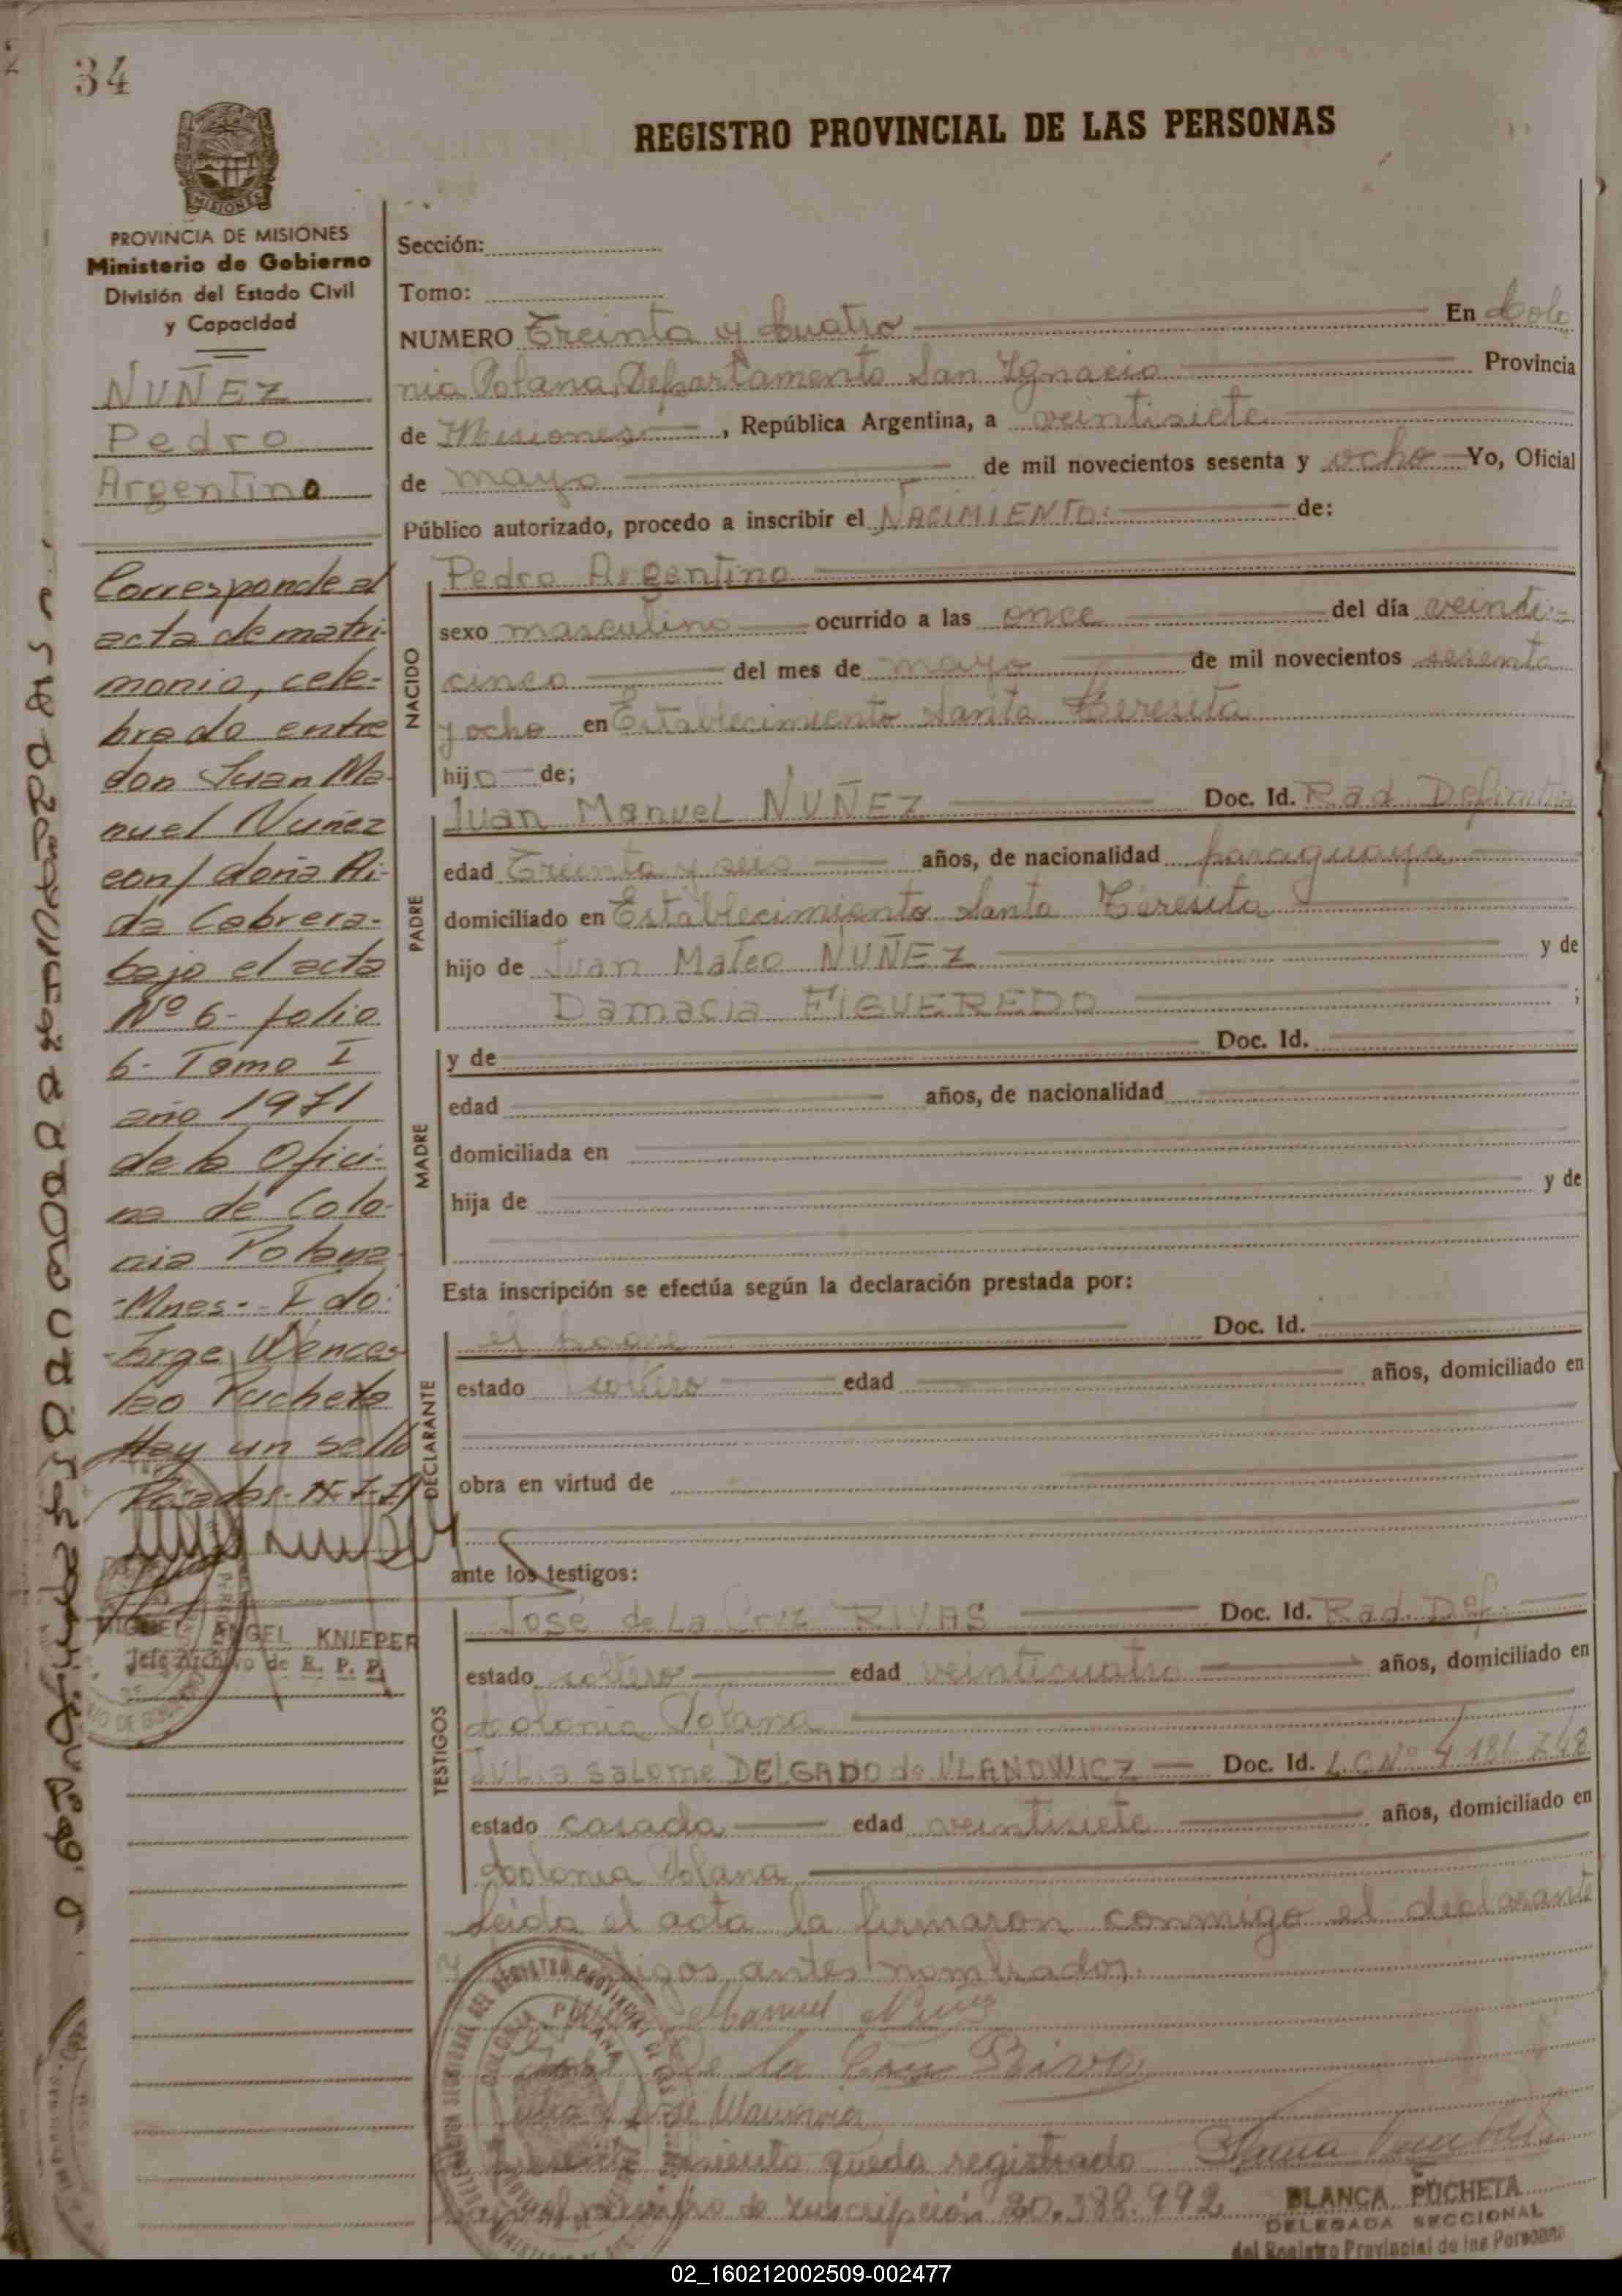 34
REGISTRO PROVINCIAL DE LAS PERSONAS
MISIONES
PROVINCIA DE MISIONES
Ministerio de Gobierno
División del Estado Civil
y Capacidad
NUÑEZ
Pedro
Argentino
Corresponde al
acta de matri-
monio, cele-
brado entre
don Juan Ma-
nuel Nuñez
con/ doña Ai-
da Cabrera-
bajo el acta
Nº 6- folio
6- Tomo I
año 1971
de la Ofici-
na de Colo-
nia Polana
-Mnes.- Fdo:
Jorge Wences
lao Pucheta
Hay un sello
MIGUEL ANGEL KNIEPER
Jefe Archivo de R. P. P.
Sección:
Tomo:
NUMERO Treinta y Cuatro En Colo
nia Polana, Departamento San Ignacio Provincia
de Misiones, República Argentina, a veintisiete
de mayo de mil novecientos sesenta y ocho Yo, Oficial
Público autorizado, procedo a inscribir el NACIMIENTO: de:
NACIDO
Pedro Argentino
sexo masculino ocurrido a las once del día veinti-
cinco del mes de mayo de mil novecientos sesenta
y ocho en Establecimiento Santa Teresita
hijo de;
PADRE
Juan Manuel NUÑEZ Doc. Id. Rad. Definitiva
edad Treinta y seis años, de nacionalidad paraguaya
domiciliado en Establecimiento Santa Teresita
hijo de Juan Mateo NUÑEZ y de
Damacia FIGUEREDO ;
MADRE
y de Doc. Id.
edad años, de nacionalidad
domiciliada en
hija de y de
Esta inscripción se efectúa según la declaración prestada por:
DECLARANTE
el padre Doc. Id.
estado soltero edad años, domiciliado en
obra en virtud de
ante los testigos:
TESTIGOS
José de La Cruz RIVAS Doc. Id. Rad. Def.
estado soltero edad veinticuatro años, domiciliado en
Colonia Polana
Julia Salomé DELGADO de VLANOWICZ Doc. Id. L.C Nº 4.181.748
estado casada edad veintisiete años, domiciliado en
Colonia Polana
Leida el acta la firmaron conmigo el declarante
y testigos antes nombrados.
Manuel Nuñez
José de la Cruz Rivas
queda registrado
de inscripción 20.388.992
BLANCA PUCHETA
DELEGADA SECCIONAL
del Registro Provincial de las Personas
02_160212002509-002477